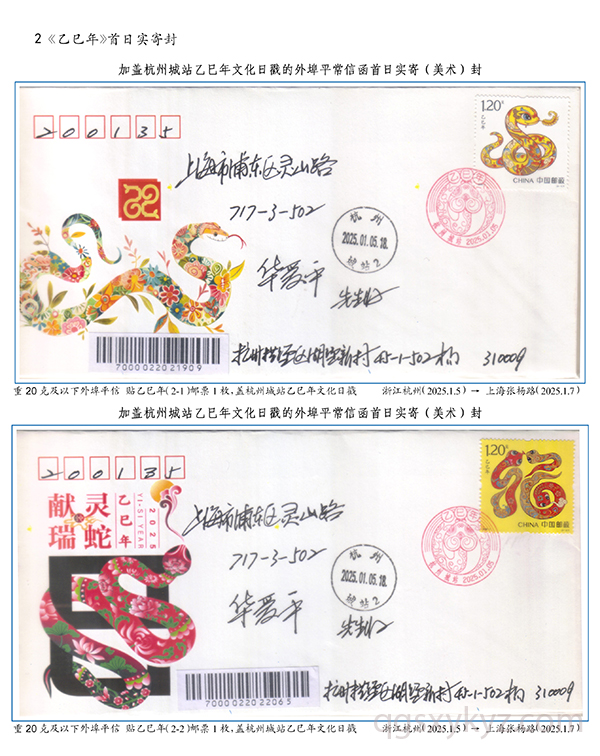 2《乙巳年》首日实寄封
加盖杭州城站乙巳年文化日戳的外埠平常信函首日实寄（美术）封
200135
1.20元
乙巳年
CHINA 中国邮政
上海市浦东区灵山路
717-3-502
乙巳年
杭州
2025.01.05.18
城站2
杭州城站 2025.01.05
华爱平
先生收
310009
70000220 21909
重20克及以下外埠平信 贴乙巳年(2-1)邮票1枚,盖杭州城站乙巳年文化日戳 浙江杭州(2025.1.5) → 上海张杨路(2025.1.7)
加盖杭州城站乙巳年文化日戳的外埠平常信函首日实寄（美术）封
200135
1.20元
乙巳年
CHINA 中国邮政
献 灵
瑞 蛇
乙巳年
YI-SI-YEAR
2025
上海市浦东区灵山路
717-3-502
乙巳年
杭州
2025.01.05.18
城站2
杭州城站 2025.01.05
华爱平
先生收
310009
70000220 22065
重20克及以下外埠平信 贴乙巳年(2-2)邮票1枚,盖杭州城站乙巳年文化日戳 浙江杭州(2025.1.5) → 上海张杨路(2025.1.7)
qgsxykyz.com